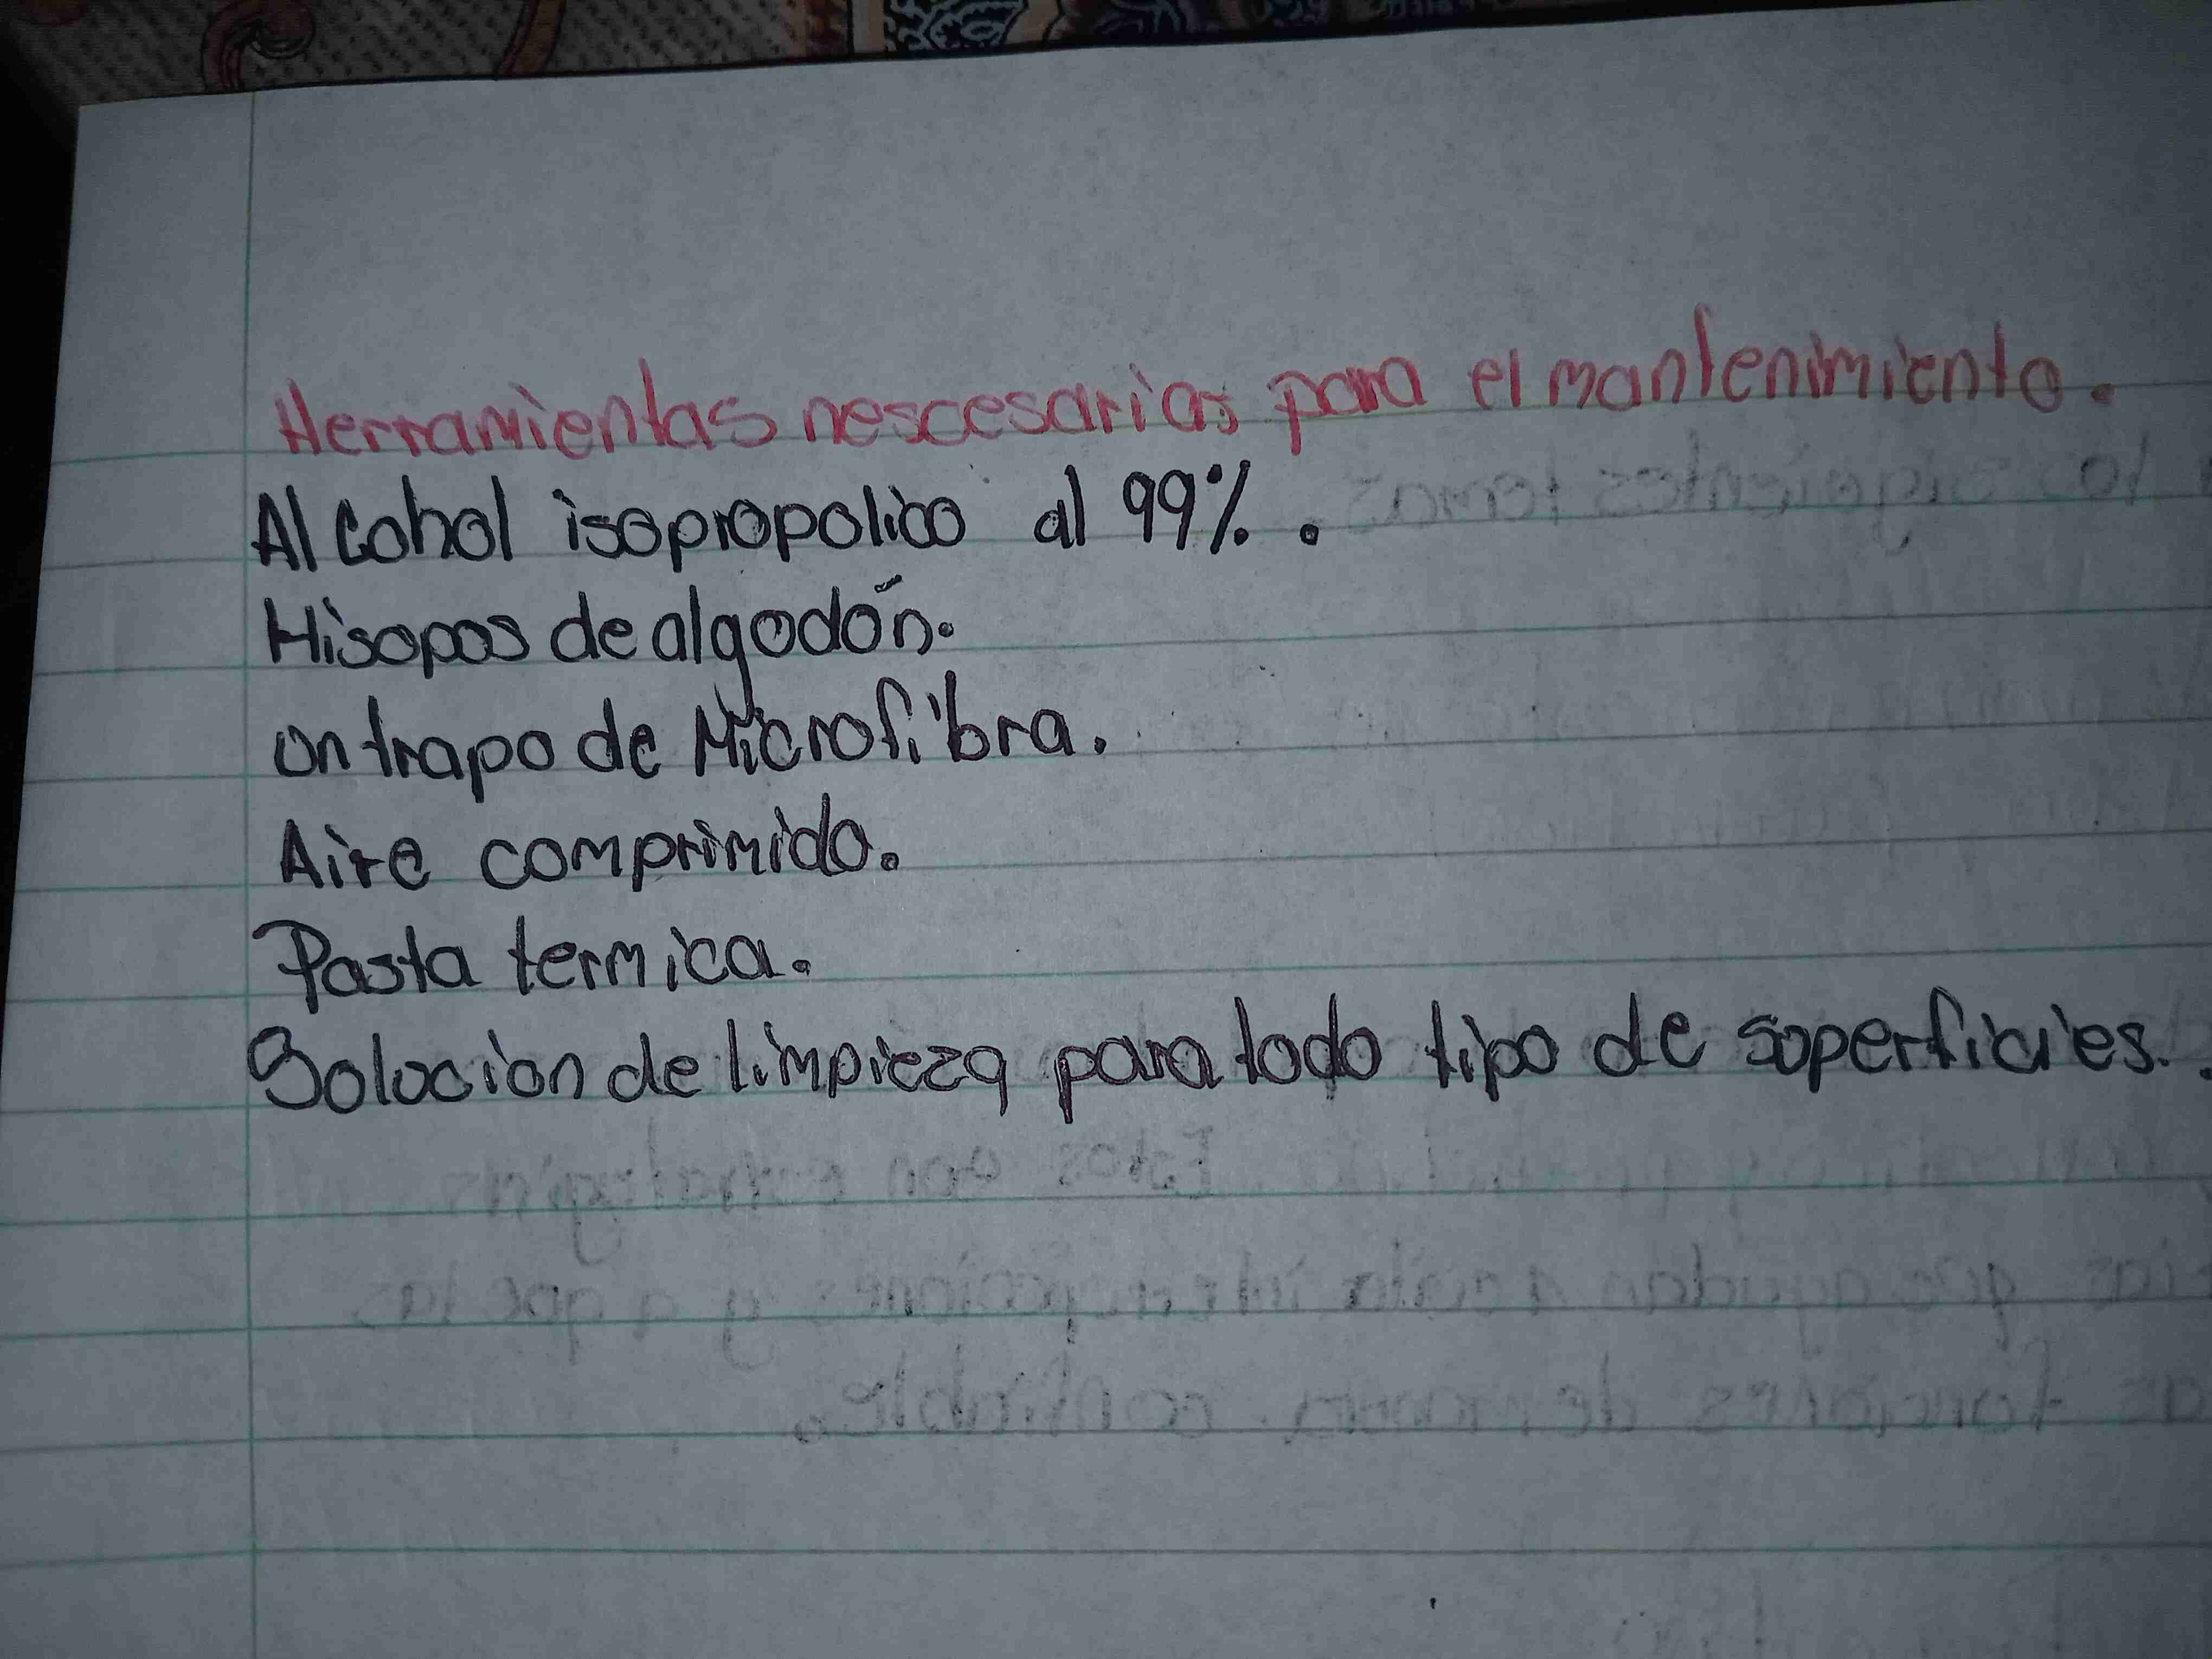 Herramientas nescesarias para el mantenimiento.
Alcohol isopropolico al 99%.
Hisopos de algodón.
un trapo de Microfibra.
Aire comprimido.
Pasta termica.
Solucion de limpieza para todo tipo de superficies.